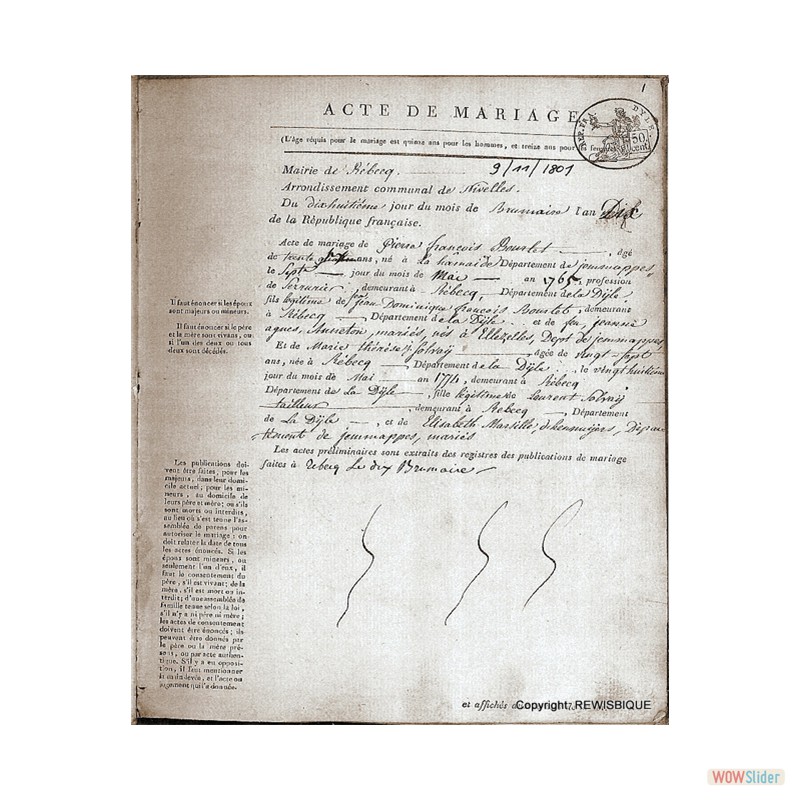 1
ACTE DE MARIAGE
DEP. DYLE
50. cent.
(L'âge réquis pour le mariage est quinze ans pour les hommes, et treize ans pour les femmes.
Mairie de Rébecq. 9/11/1801
Arrondissement communal de Nivelles.
Du dixhuitième jour du mois de Brumaire l'an Dix
de la République française.
Acte de mariage de Pierre françois Bourlet, âgé
de trente ans, né à La hamaide Département de jemmappes,
le Sept jour du mois de Mai an 1765, profession
de Serrurier, demeurant à Rébecq, Département de la Dÿle.
fils légitime de jean Dominique françois Bourlet, demeurant
à Rébecq, Département de la Dÿle et de feu jeanne
agnes, mariés, nés à Ellezelles, Dept de jemmappes,
Et de Marie thérèse Solvaÿ âgée de vingt-sept
ans, née à Rébecq, Département de la Dÿle, le vingt huitième
jour du mois de Mai an 1774, demeurant à Rébecq
Département de La Dÿle, fille légitime de Laurent Solvaÿ
tailleur, demeurant à Rebecq, Département
de La Dÿle, et de Elisabeth
de jemmappes, mariés
Les actes préliminaires sont extraits des registres des publications de mariage
faites à Rebecq Le dix Brumaire
Il faut énoncer si les époux
sont majeurs ou mineurs.
Il faut énoncer si le père
et la mère sont vivans, ou
si l'un des deux ou tous
deux sont décédés.
Les publications doi-
vent être faites, pour les
majeurs, dans leur domi-
cile actuel; pour les mi-
neurs, au domicile de
leurs père et mère; ou s'ils
sont morts ou interdits,
au lieu où s'est tenue l'as-
semblée de parens pour
autoriser le mariage: on
doit relater la date de tous
les actes énoncés. Si les
époux sont mineurs, ou
seulement l'un d'eux, il
faut le consentement du
père, s'il est vivant; de la
mère, s'il est mort ou in-
terdit; d'une assemblée de
famille tenue selon la loi,
s'il n'y a ni père ni mère;
les actes de consentement
doivent être énoncés; ils
peuvent être donnés par
le père ou la mère pré-
sens, ou par acte authen-
tique. S'il y a eu opposi-
tion, il faut mentionner
la main levée, et l'acte ou
jugement qui l'a donnée.
et affichés
Copyright: REWISBIQUE
WOWSlider